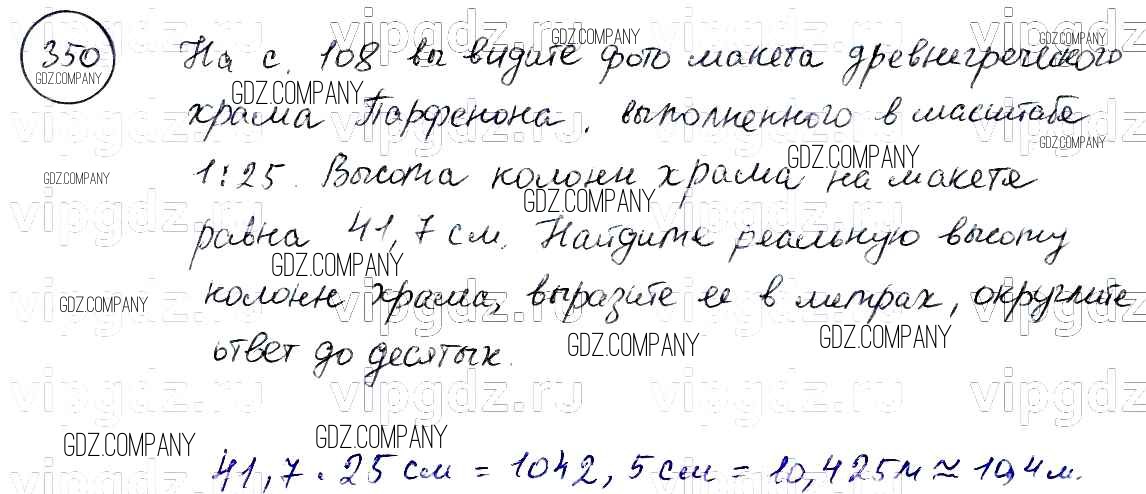 350 На с. 108 вы видите фото макета древнегреческого
храма Парфенона, выполненного в масштабе
1:25. Высота колонн храма на макете
равна 41,7 см. Найдите реальную высоту
колонн храма, выразите ее в метрах, округлите
ответ до десятых.
41,7 · 25 см = 1042,5 см = 10,425 м ≈ 10,4 м.
GDZ.COMPANY
vipgdz.ru